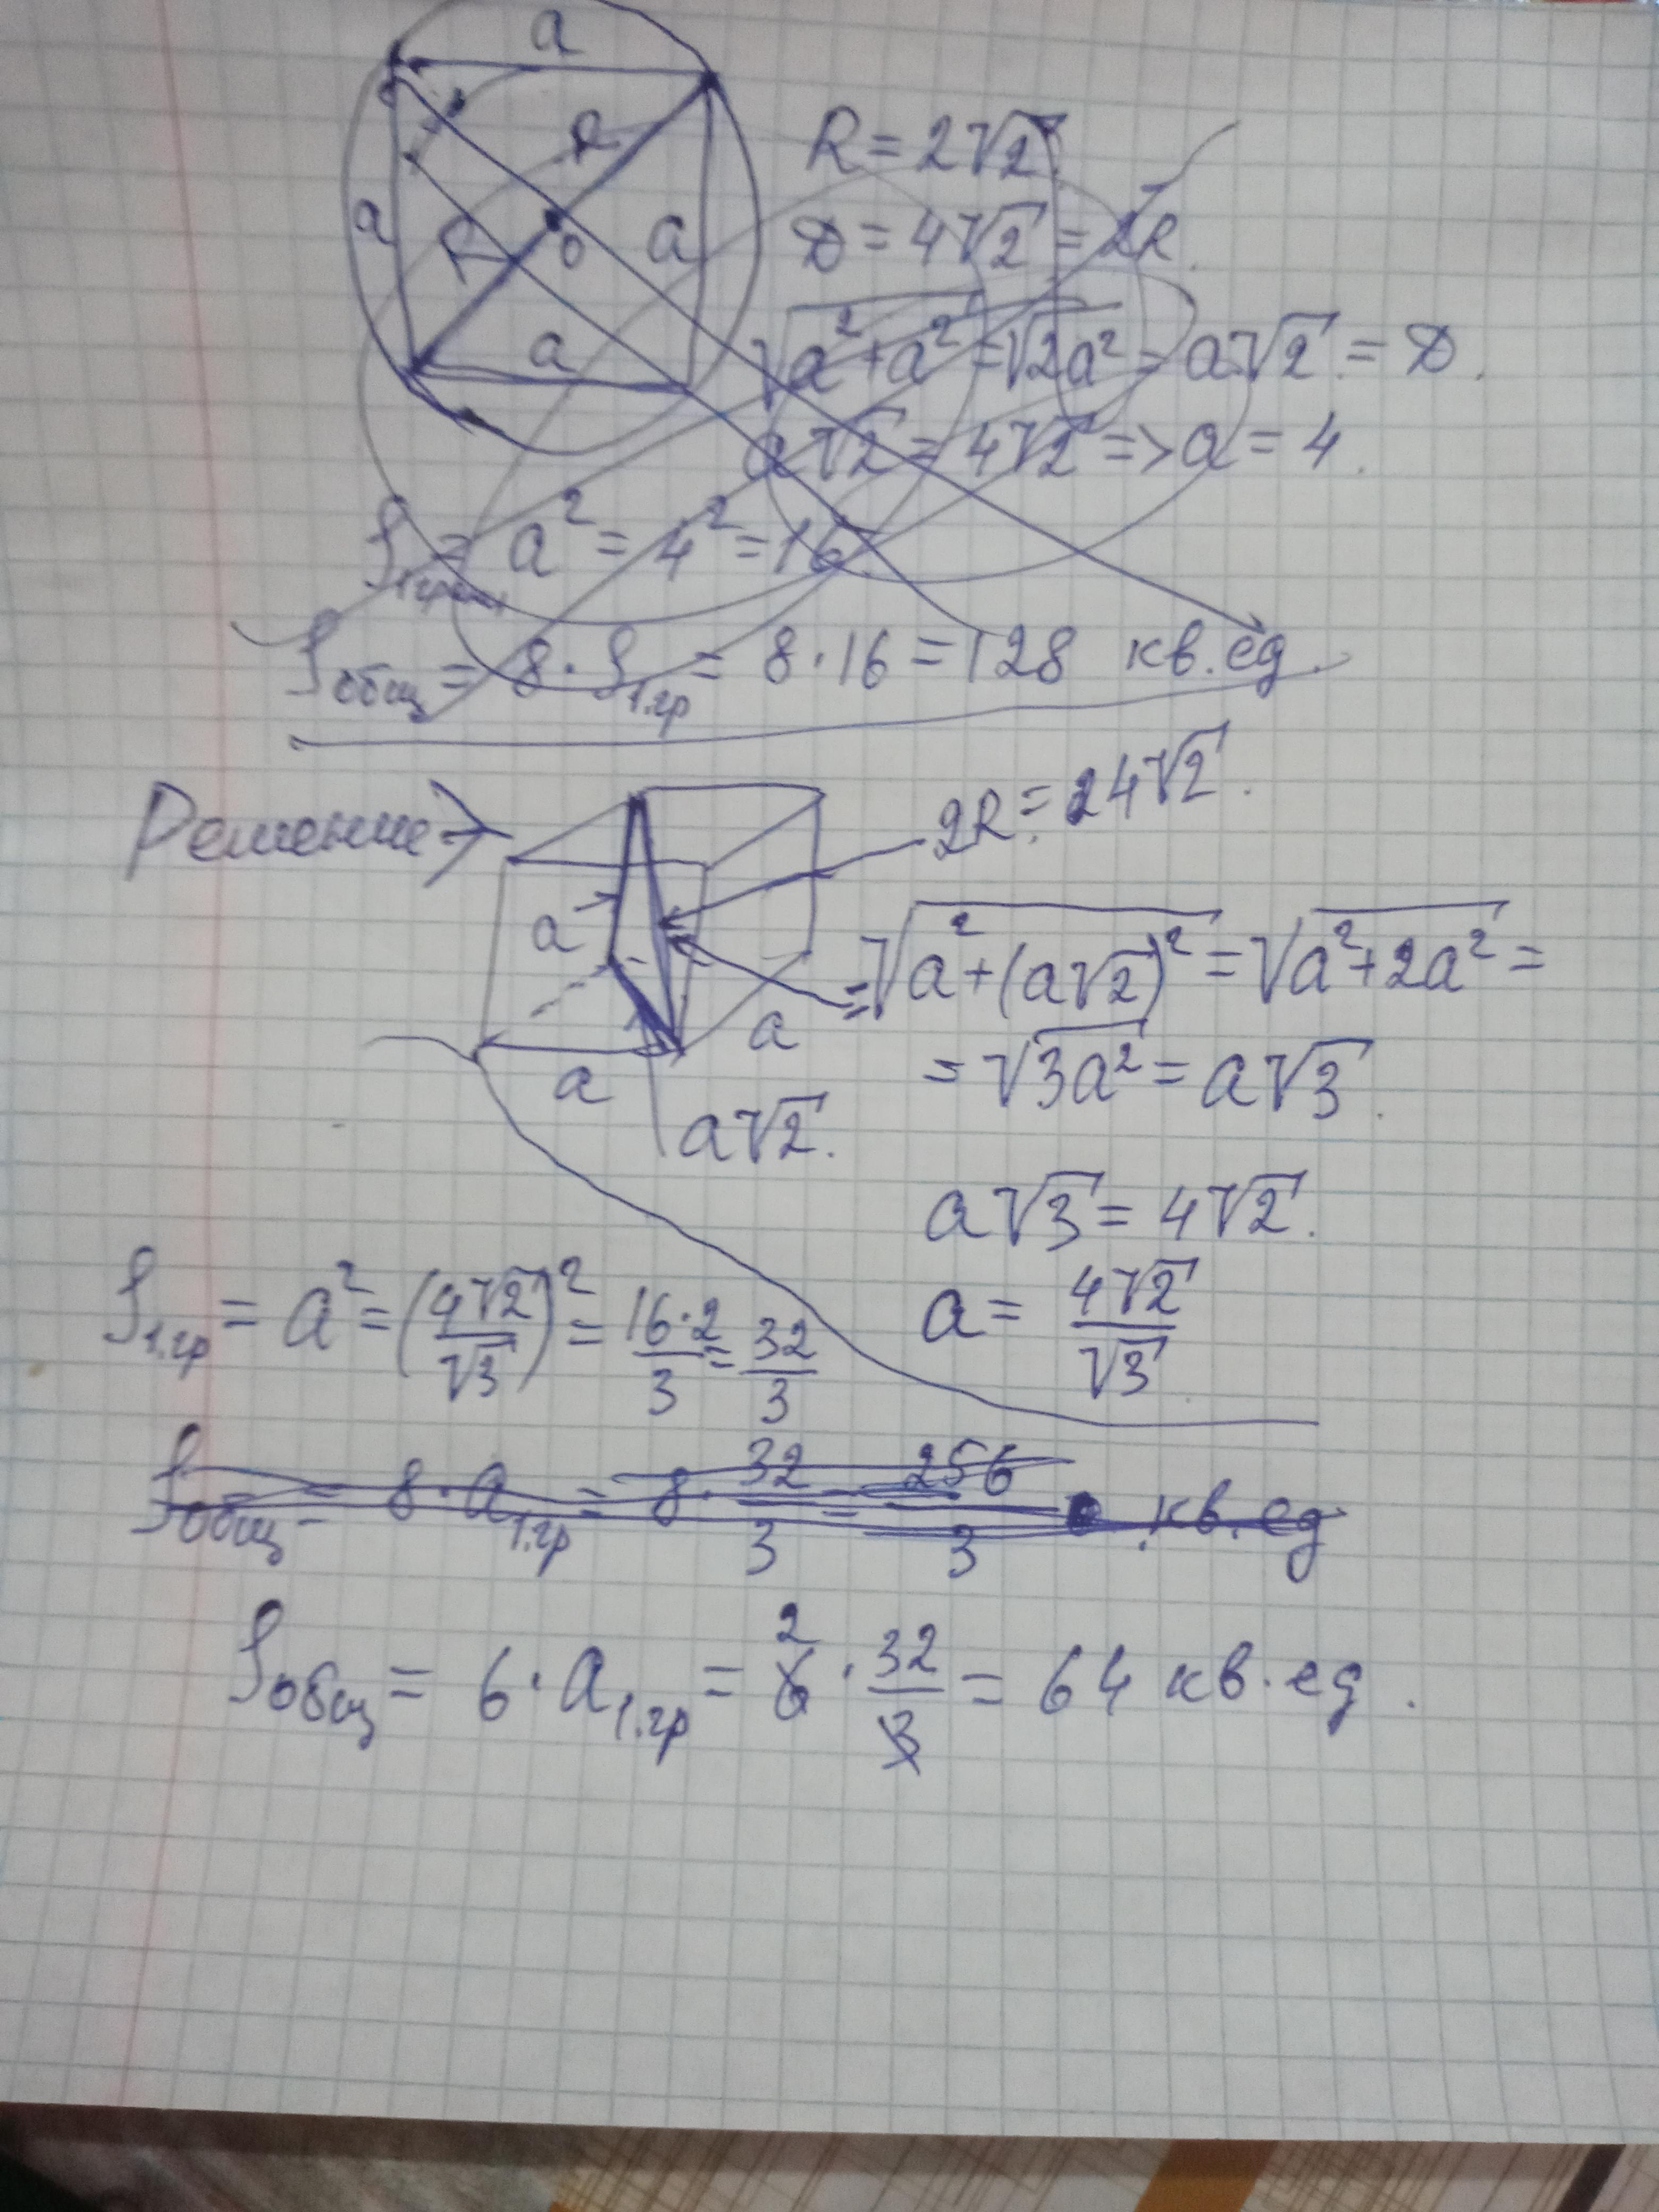 a
R
R = 2√2
a
R
o
a
D = 4√2 = 2R.
a
√(a² + a²) = √(2a²) = a√2 = D.
a√2 = 4√2 => a = 4.
S₁ = a² = 4² = 16
Sобщ = 8 · S₁.гр = 8 · 16 = 128 кв. ед.
Решение →
2R = 24√2.
a
= √(a² + (a√2)²) = √(a² + 2a²) =
a
= √(3a²) = a√3.
a
a√2.
a√3 = 4√2.
S₁.гр = a² = (4√2/√3)² = 16·2/3 = 32/3
a = 4√2/√3
Sобщ = 8 · a₁.гр = 8 · 32/3 = 256/3 . кв. ед
Sобщ = 6 · a₁.гр = 6 2 · 32/3 = 64 кв. ед.